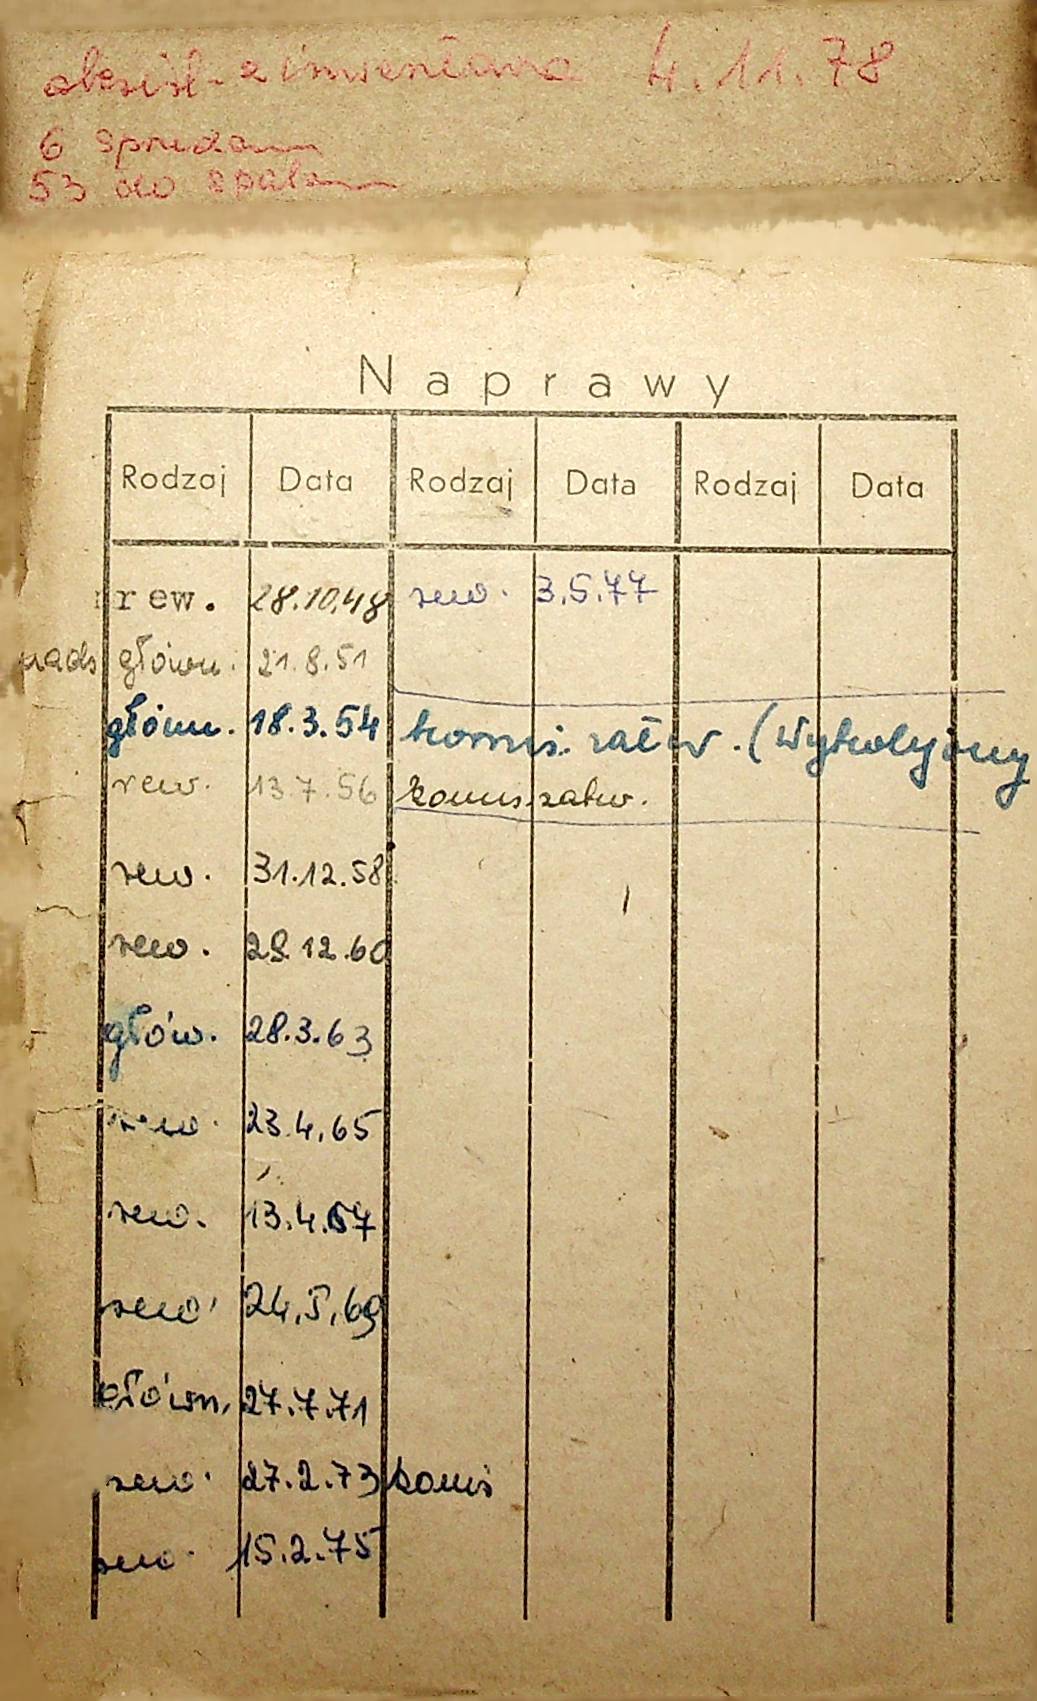 4.11.78
6
53 do
Naprawy
Rodzaj Data Rodzaj Data Rodzaj Data
rew. 28.10.48 rew. 3.5.77
nads główn. 21.8.51
główn. 18.3.54 komis. zatw. (Wykolejony
rew. 13.7.56 komis. zatw.
rew. 31.12.58
rew. 28.12.60
głów. 28.3.63
rew. 23.4.65
rew. 13.4.67
rew. 24.5.69
główn. 27.7.71
rew. 27.2.73 komis
rew. 15.2.75